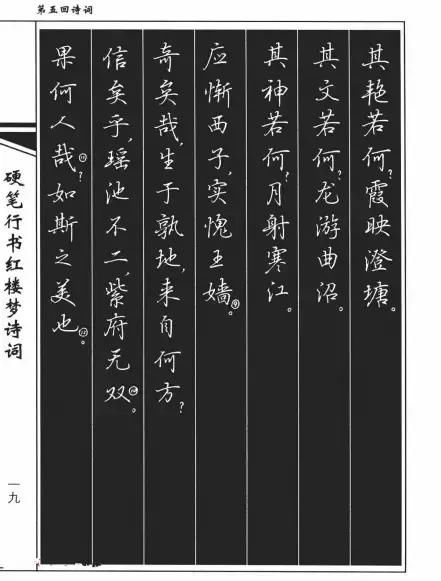 第五回诗词
其艳若何?霞映澄塘。
其文若何?龙游曲沼。
其神若何?月射寒江。
应惭西子,实愧王嫱⑨。
奇矣哉,生于孰地,来自何方?
信矣乎,瑶池不二,紫府无双。
果何人哉?如斯之美也。
硬笔行书红楼梦诗词
一九